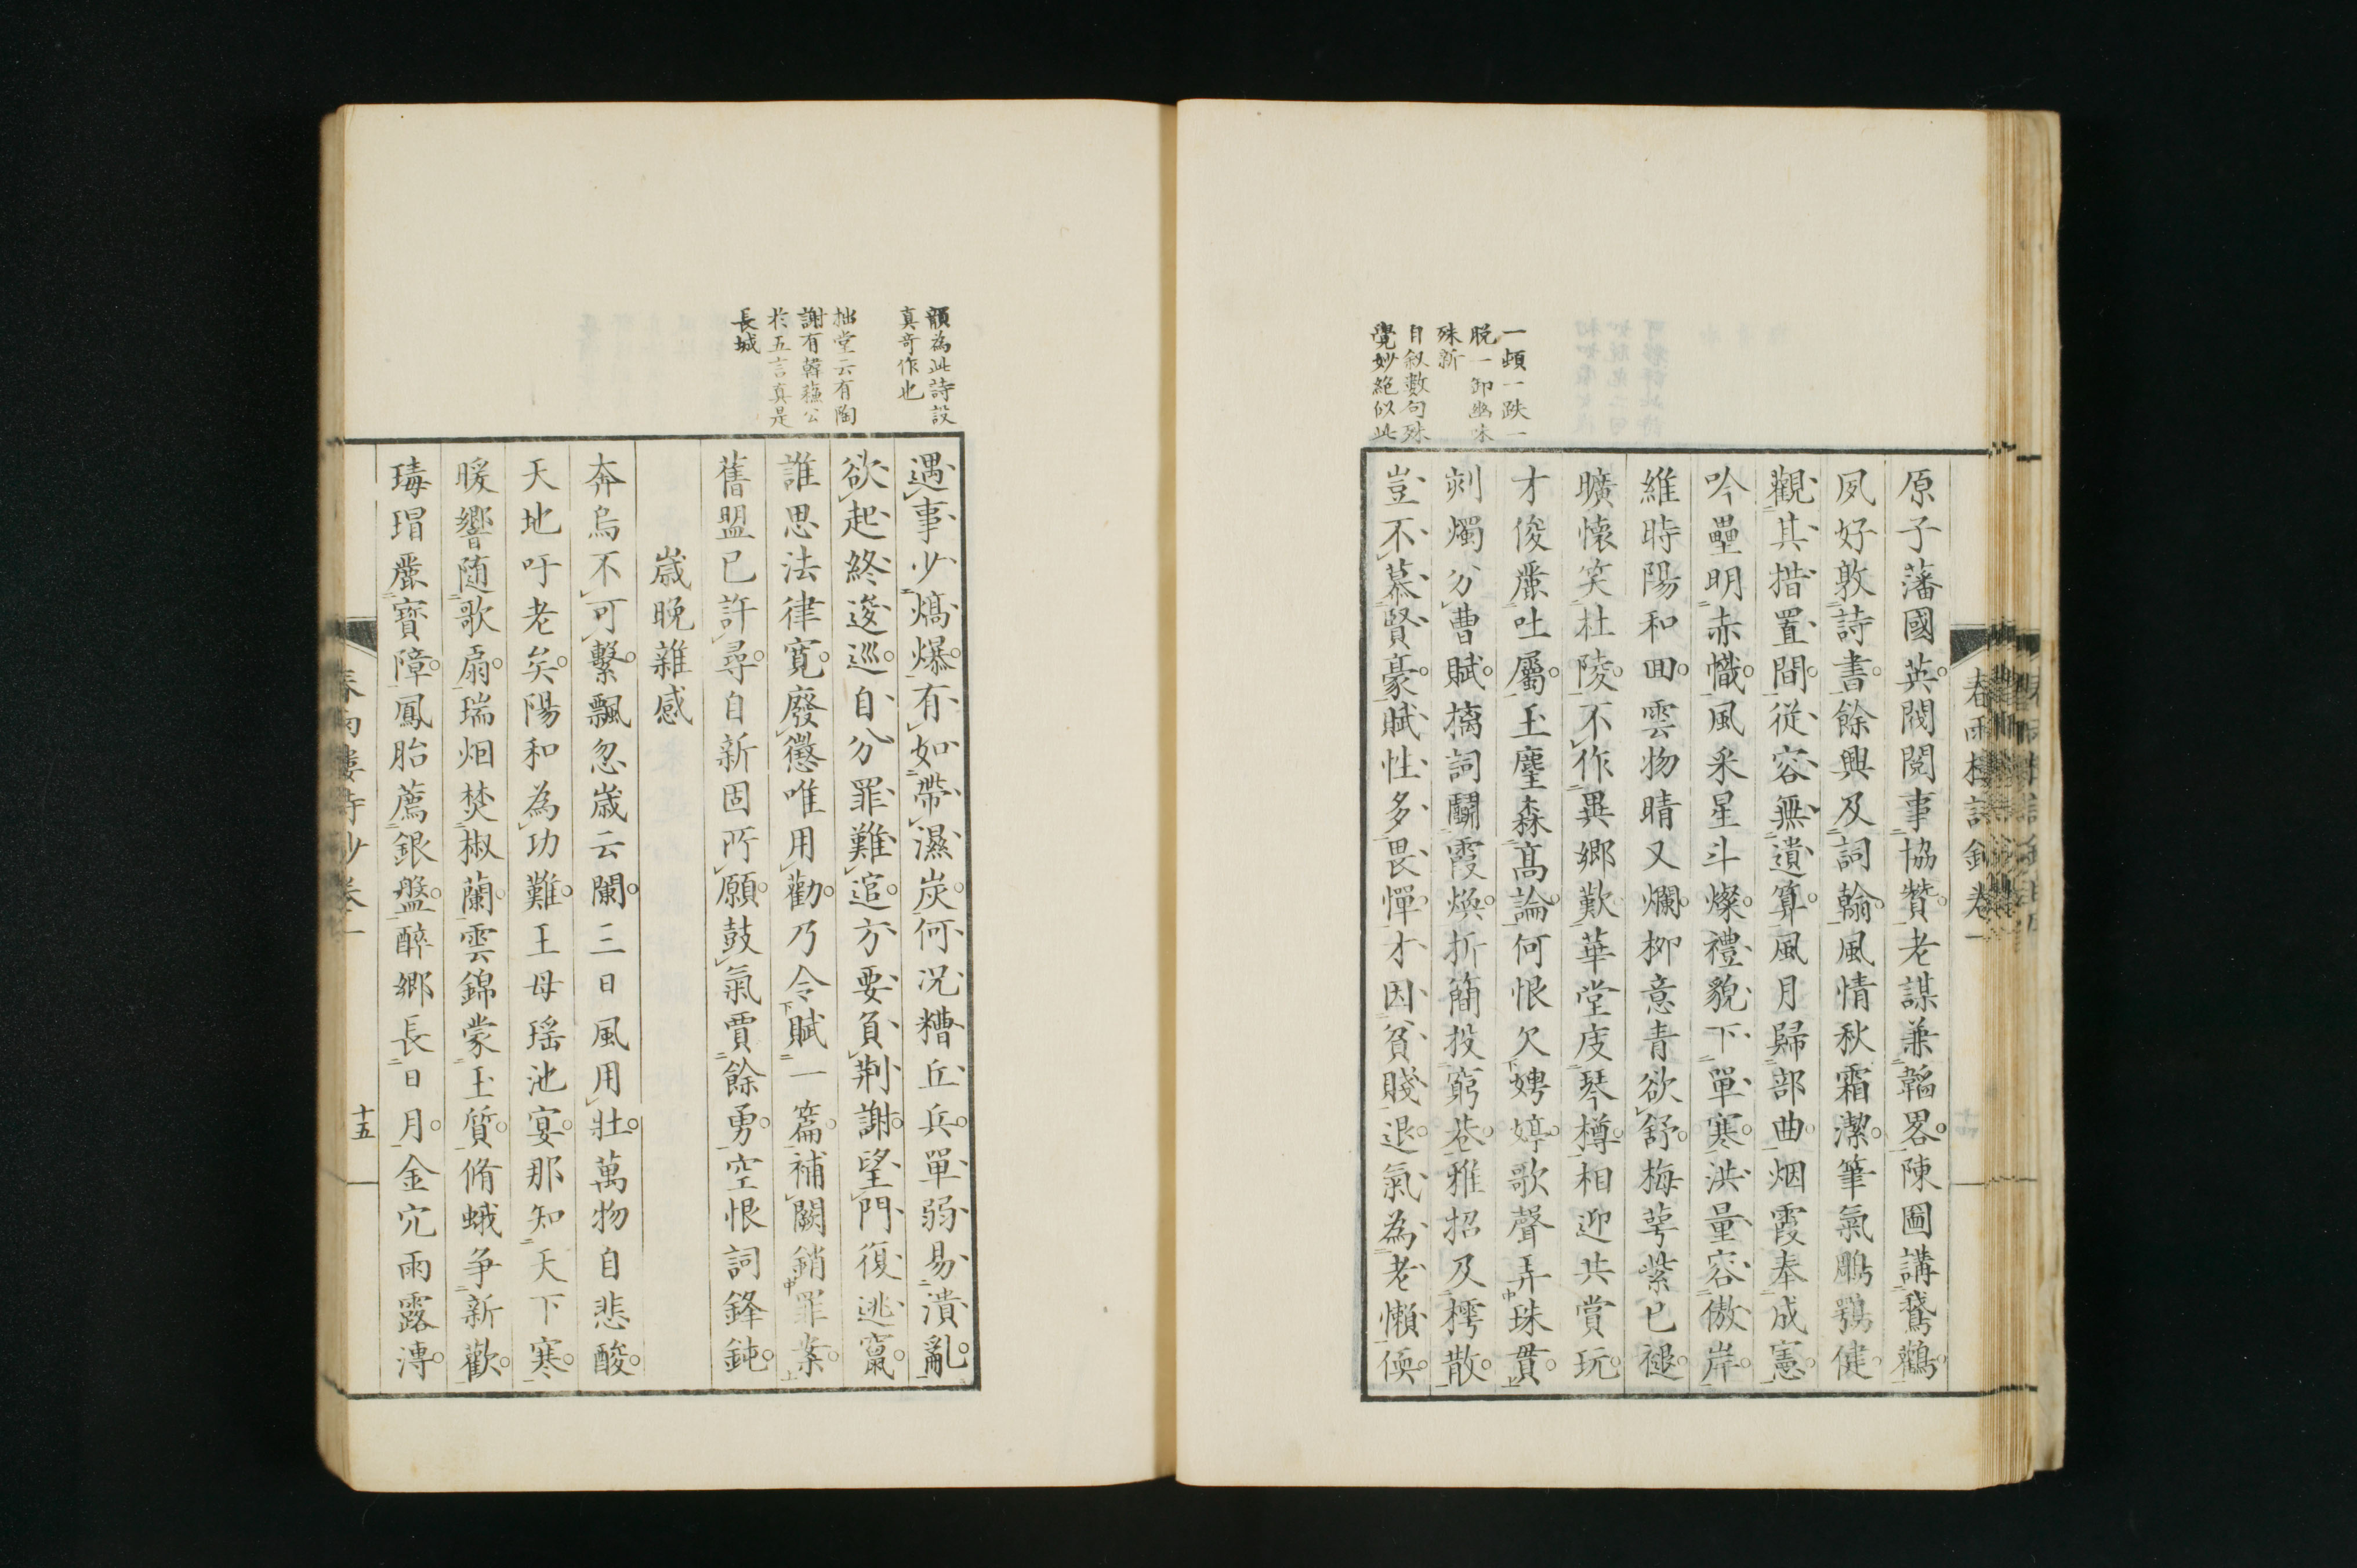 一頓一跌一
脫一卸幽味
殊新
自叙數句殊
覺妙絶似此
原子藩國英閥閱事協贊老謀兼韜畧陳圖講鵞鸛
夙好敦詩書餘興及詞翰風情秋霜潔筆氣鵰鶚健
觀其措置間從容無遺算風月歸部曲烟霞奉成憲
吟壘明赤幟風采星斗燦禮貌下單寒洪量容傲岸
維時陽和回雲物晴又爛柳意青欲舒梅萼紫已褪
曠懷笑杜陵不作異鄉歎華堂庋琴樽相迎共賞玩
才俊嚴吐屬玉麈森高論何恨欠娉婷歌聲弄珠貫
剡燭分曹賦摛詞鬭霞煥折簡投窮巷雅招及樗散
豈不慕賢豪賦性多畏憚才因貧賤退氣為老懶偄
春雨樓詩鈔卷一
額為此詩設
真奇作也
拙堂云有陶
謝有韓蘓公
於五言真是
長城
遇事少熇爆有如帶濕炭何況糟丘兵單弱易潰亂
欲起終逡巡自分罪難逭方要負荆謝望門復逃竄
誰思法律寬廢懲唯用勸乃令賦一篇補闕銷罪案
舊盟已許尋自新固所願鼓氣賈餘勇空恨詞鋒鈍
歲晚雜感
奔烏不可繫飄忽歲云闌三日風用壯萬物自悲酸
天地吁老矣陽和為功難王母瑤池宴那知天下寒
暖響随歌扇瑞烟焚椒蘭雲錦蒙玉質脩蛾争新歡
瑇瑁嚴寳障鳳胎薦銀盤醉郷長日月金穴雨露漙
春雨樓詩鈔卷一
十五